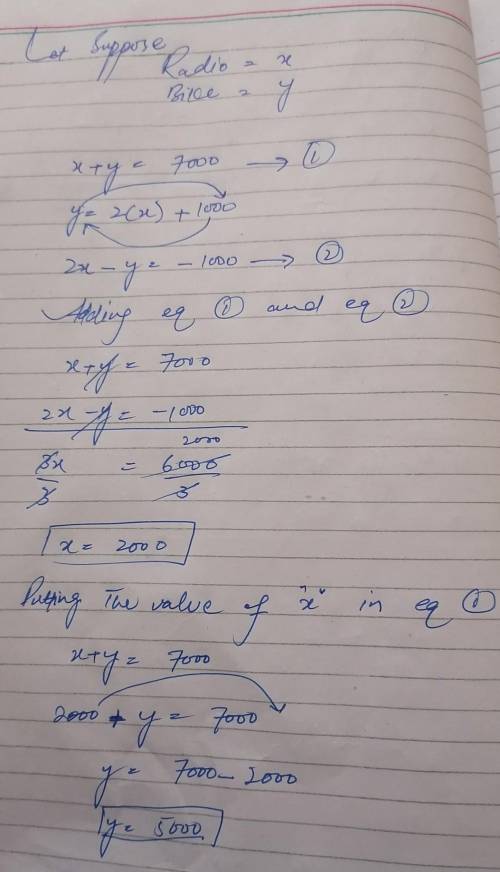 Let Suppose
Radio = x
Bike = y
x+y = 7000 → ①
y = 2(x) + 1000
2x - y = -1000 → ②
Adding eq ① and eq ②
x+y = 7000
2x - y = -1000
2000
3x = 6000
3 3
x = 2000
Putting The value of "x" in eq ①
x+y = 7000
2000 + y = 7000
y = 7000 - 2000
y = 5000